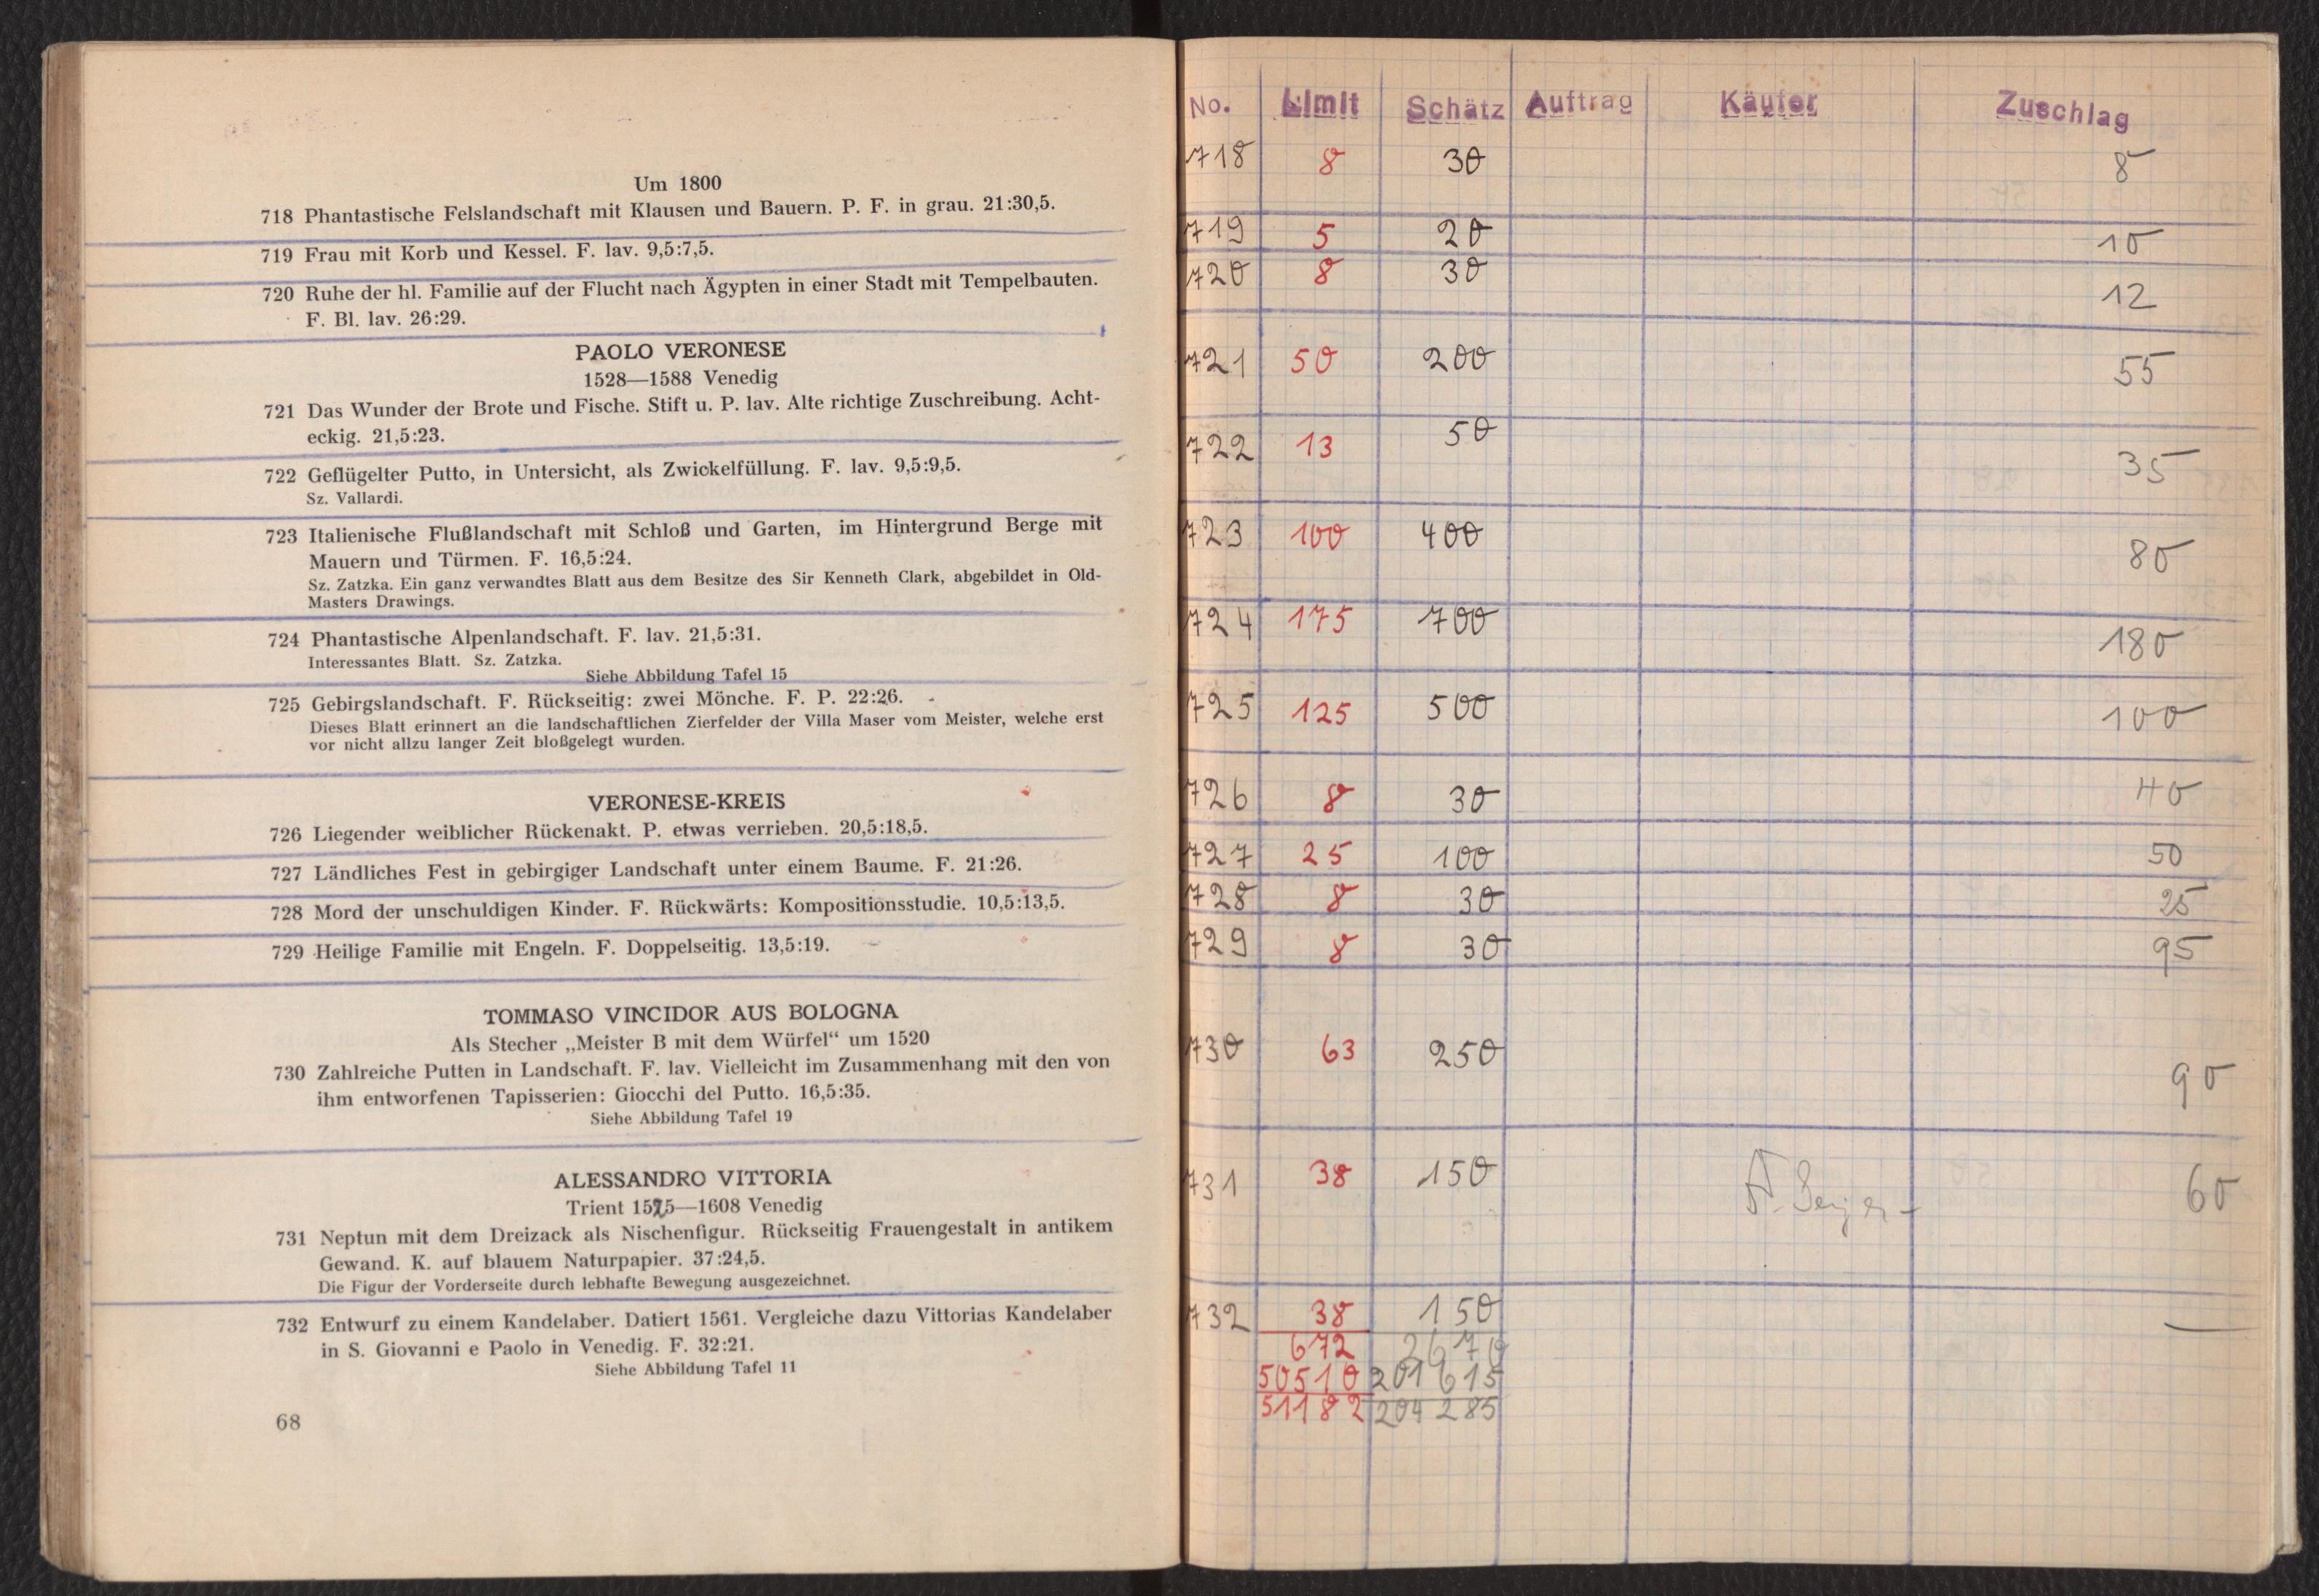 Um 1800
718 Phantastische Felslandschaft mit Klausen und Bauern. P. F. in grau. 21:30,5.
719 Frau mit Korb und Kessel. F. lav. 9,5:7,5.
720 Ruhe der hl. Familie auf der Flucht nach Ägypten in einer Stadt mit Tempelbauten.
F. Bl. lav. 26:29.
PAOLO VERONESE
1528—1588 Venedig
721 Das Wunder der Brote und Fische. Stift u. P. lav. Alte richtige Zuschreibung. Acht-
eckig. 21,5:23.
722 Geflügelter Putto, in Untersicht, als Zwickelfüllung. F. lav. 9,5:9,5.
Sz. Vallardi.
723 Italienische Flußlandschaft mit Schloß und Garten, im Hintergrund Berge mit
Mauern und Türmen. F. 16,5:24.
Sz. Zatzka. Ein ganz verwandtes Blatt aus dem Besitze des Sir Kenneth Clark, abgebildet in Old-
Masters Drawings.
724 Phantastische Alpenlandschaft. F. lav. 21,5:31.
Interessantes Blatt. Sz. Zatzka.
Siehe Abbildung Tafel 15
725 Gebirgslandschaft. F. Rückseitig: zwei Mönche. F. P. 22:26.
Dieses Blatt erinnert an die landschaftlichen Zierfelder der Villa Maser vom Meister, welche erst
vor nicht allzu langer Zeit bloßgelegt wurden.
VERONESE-KREIS
726 Liegender weiblicher Rückenakt. P. etwas verrieben. 20,5:18,5.
727 Ländliches Fest in gebirgiger Landschaft unter einem Baume. F. 21:26.
728 Mord der unschuldigen Kinder. F. Rückwärts: Kompositionsstudie. 10,5:13,5.
729 Heilige Familie mit Engeln. F. Doppelseitig. 13,5:19.
TOMMASO VINCIDOR AUS BOLOGNA
Als Stecher „Meister B mit dem Würfel“ um 1520
730 Zahlreiche Putten in Landschaft. F. lav. Vielleicht im Zusammenhang mit den von
ihm entworfenen Tapisserien: Giocchi del Putto. 16,5:35.
Siehe Abbildung Tafel 19
ALESSANDRO VITTORIA
Trient 1525—1608 Venedig
731 Neptun mit dem Dreizack als Nischenfigur. Rückseitig Frauengestalt in antikem
Gewand. K. auf blauem Naturpapier. 37:24,5.
Die Figur der Vorderseite durch lebhafte Bewegung ausgezeichnet.
732 Entwurf zu einem Kandelaber. Datiert 1561. Vergleiche dazu Vittorias Kandelaber
in S. Giovanni e Paolo in Venedig. F. 32:21.
Siehe Abbildung Tafel 11
68
No. Limit Schätz Auftrag Käufer Zuschlag
718 8 30 8
719 5 20 10
720 8 30 12
721 50 200 55
722 13 50 35
723 100 400 80
724 175 700 180
725 125 500 100
726 8 30 40
727 25 100 50
728 8 30 25
729 8 30 95
730 63 250 90
731 38 150 60
732 38 150 —
672 2670
50510 201615
51182 204285